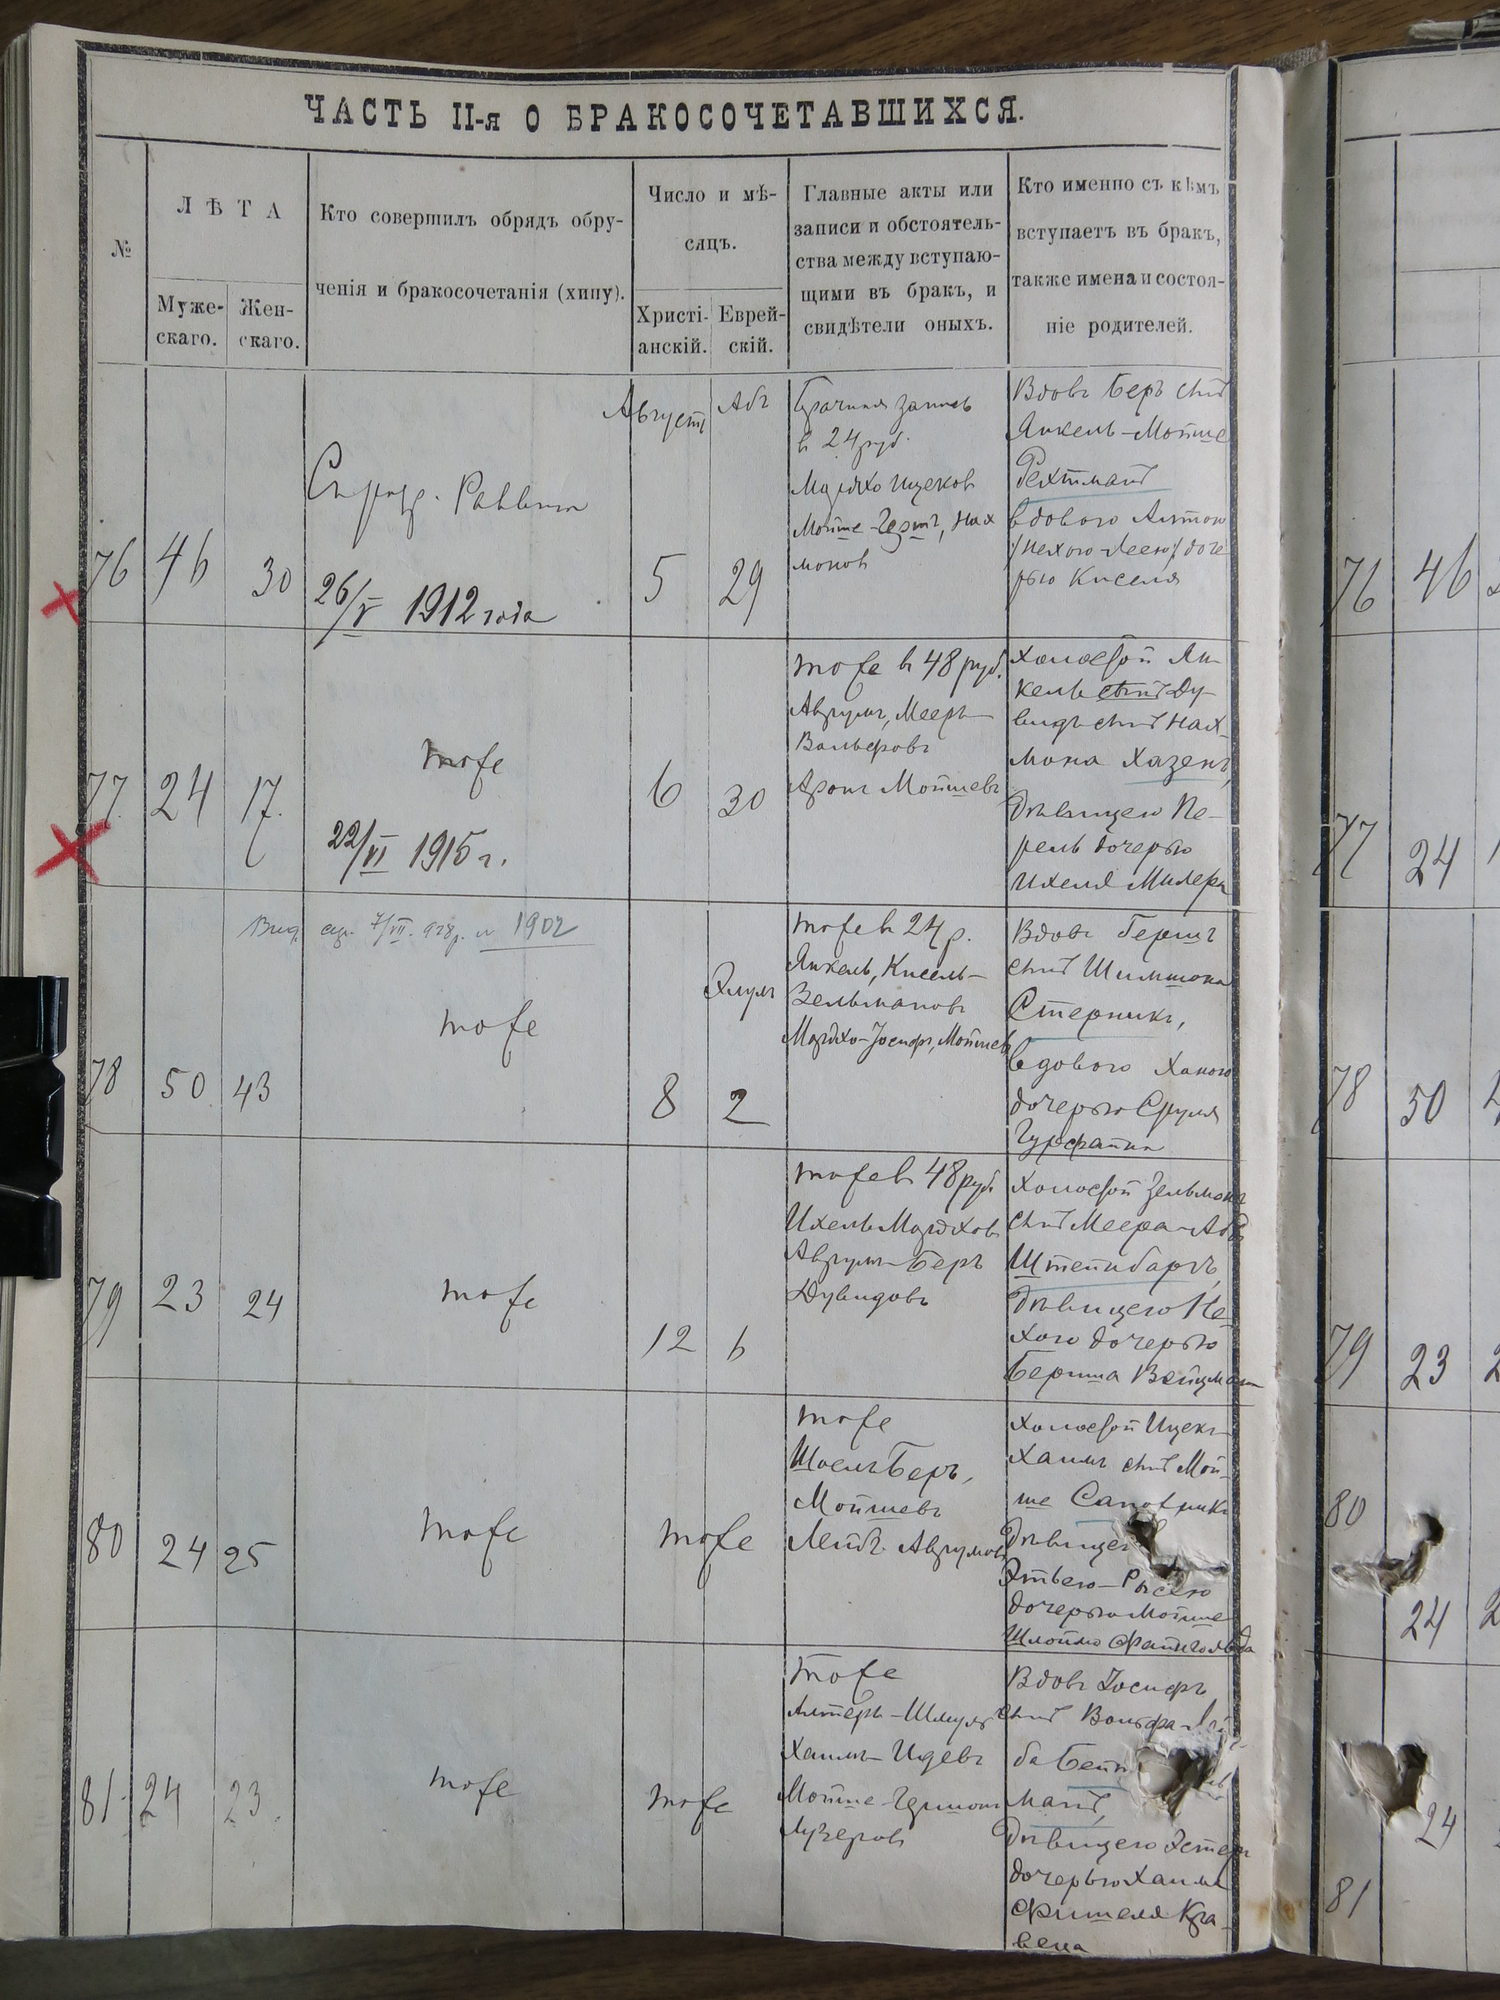 ЧАСТЬ II-я О БРАКОСОЧЕТАВШИХСЯ.
№
ЛѢТА
Муже-
скаго.
Жен-
скаго.
Кто совершилъ обрядъ обру-
ченія и бракосочетанія (хипу).
Число и мѣ-
сяцъ.
Христі-
анскій.
Еврей-
скій.
Главные акты или
записи и обстоятель-
ства между вступаю-
щими въ бракъ, и
свидѣтели оныхъ.
Кто именно съ кѣмъ
вступаетъ въ бракъ,
также имена и состоя-
ніе родителей.
76
46
30
Раввинъ
26/V 1912 года
Августъ
5
Абъ
29
Брачная запись
в 24 руб.
Мордхо Ицеков
Мойше-Гершъ, Нах
монов
Вдовъ Беръ сынъ
Янкель-Мойше
Рехтманъ
вдовою
/Нехою-Леею/ доче
рью Киселя
77
24
17.
тоже
22/VI 1915 г.
6
30
тоже в 48 руб.
Аврумъ, Мееръ
Вольфовъ
Аронъ Мойшевъ
холостой Ян-
кель сынъ Ду-
видъ сынъ Нах-
мона Хазенъ,
дѣвицею Пе-
рель дочерью
Ихеля Милера
78
50
43
1902
тоже
8
Элулъ
2
тоже в 24 р.
Янкель, Кисель-
Зельмановъ
Мордхо-Іосифъ, Мойшев
Вдовъ Гершъ
сынъ Шимшона
Стерникъ,
вдовою Ханою
дочерью Сруля
Гурфайна
79
23
24
тоже
12
6
тоже в 48 руб.
Ихель Мордхов
Аврумъ-Беръ
Дувидовъ
холостой Зельманъ
сынъ Меера-Абы
Штейнбаргъ,
дѣвицею Не-
хою дочерью
Берша Вейцман
80
24
25
тоже
тоже
тоже
Шоелъ Беръ,
Мойшевъ
Лейбъ Аврумовъ
холостой Ицекъ
Хаимъ сынъ Мой-
ше
дѣвицею
Этлею-Рысею
дочерью Мойше
Шлоймо Файнгольда
81
24
23.
тоже
тоже
тоже
Алтеръ-Шмуль
Хаимъ-Идевъ
Мойше-Гершонъ
Лузеровъ
Вдовъ Іосифъ
сынъ Вольфа-Лей-
ба
манъ,
дѣвицею Эстеръ
дочерью Хаима
Фишеля Кра-
вена
76
46
77
24
78
50
79
23
80
24
24
81